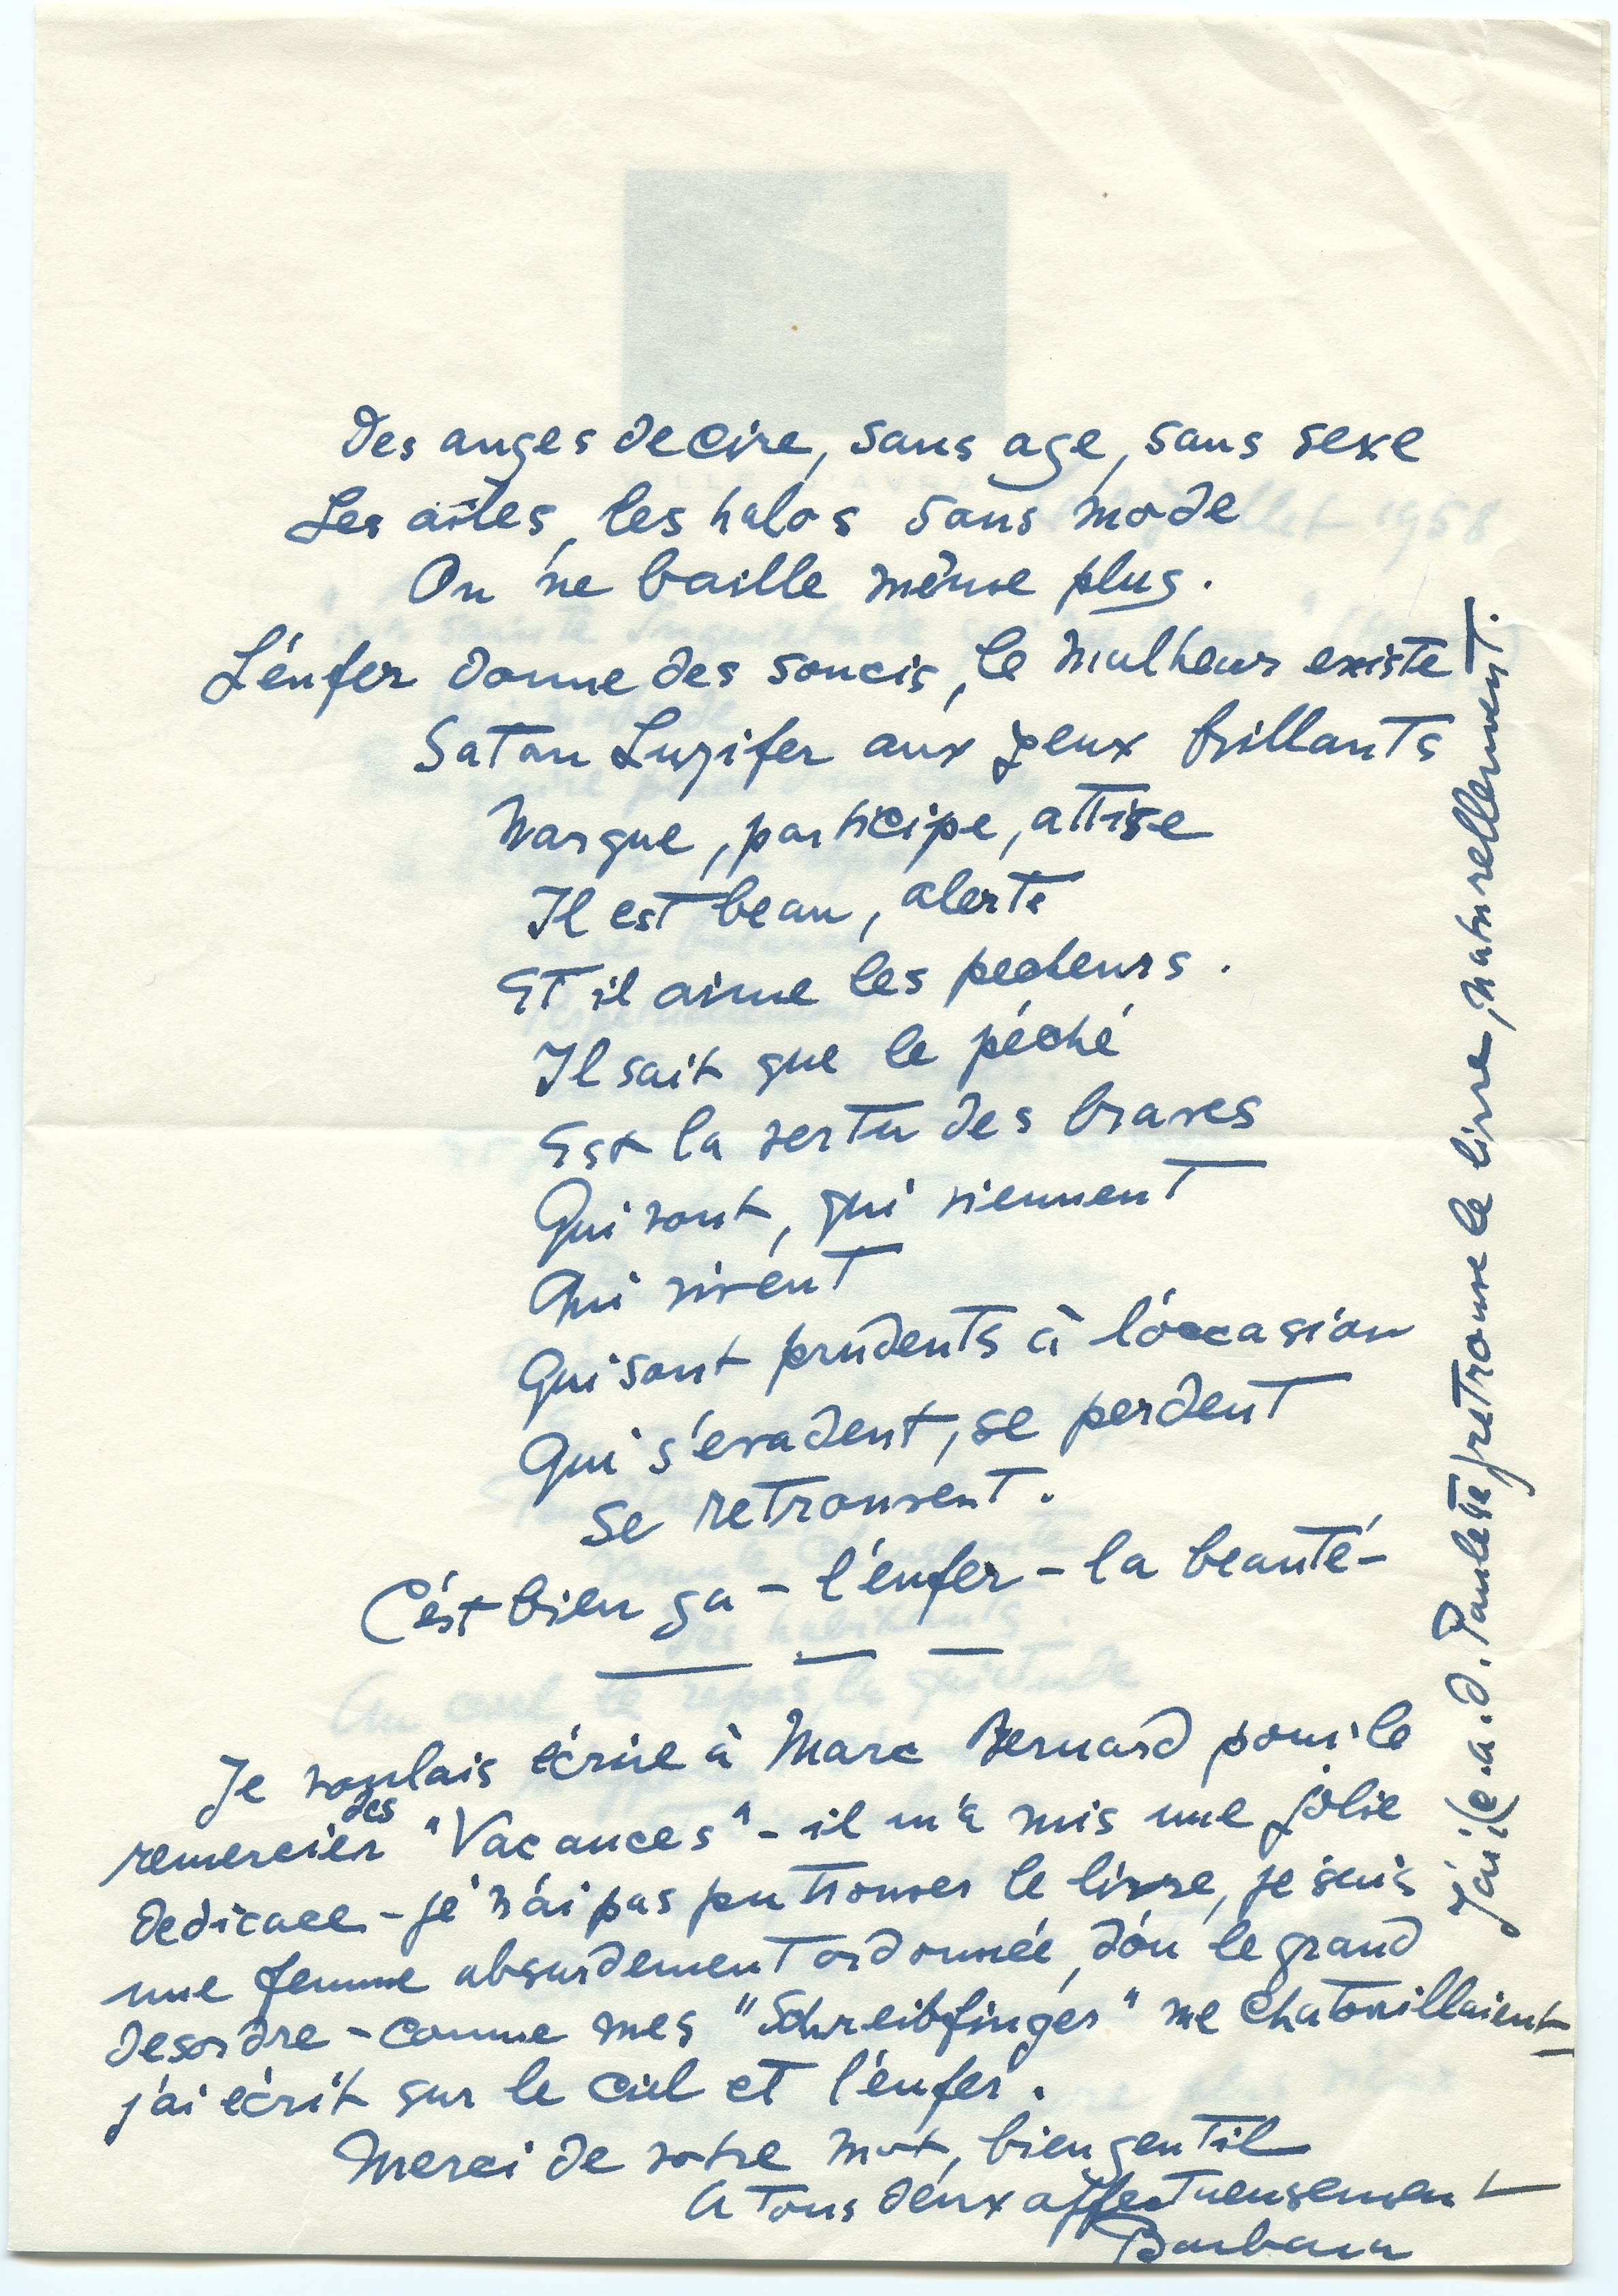 Des anges de cire, sans age, sans sexe
Les ailes, les halos sans mode
On ne baille même plus.
L'enfer donne des soucis, le malheur existe
Satan Luzifer aux yeux brillants
Nargue, participe, attise
Il est beau, alerte
Et il aime les pecheurs.
Il sait que le péché
Est la vertu des braves
Qui vont, qui viennent
Qui vivent
Qui sont prudents à l'occasion
Qui s'evadent, se perdent
se retrouvent.
C'est bien ça – l'enfer – la beauté –
Je voulais écrire à Marc Bernard pour le
remercier des "Vacances" – il m'a mis une jolie
dedicace – je n'ai pas pu trouver le livre, je suis
une femme absurdement ordonnée, d'où le grand
desordre – comme mes "Schreibfinger" me chatouillaient
j'ai écrit sur le ciel et l'enfer.
Merci de votre mot, bien gentil
A tous deux affectueusement
Barbara
J'ai (c.a.d. Paulette) retrouve le livre, naturellement.